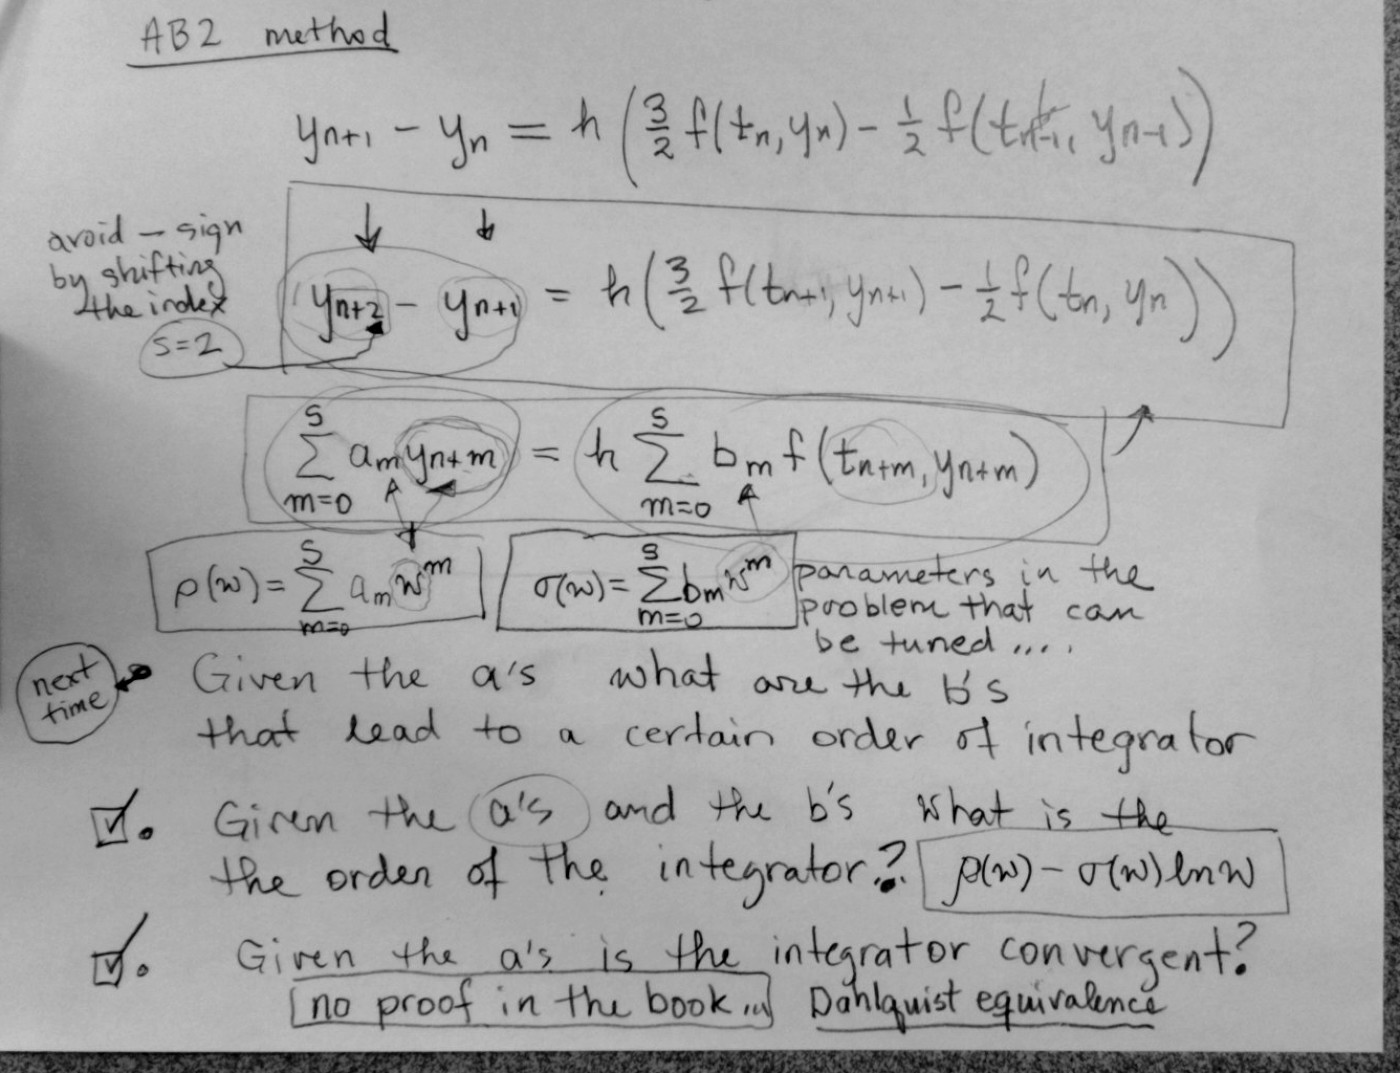 AB2 method
yn+1 − yn = h (3/2 f(tn, yn) − 1/2 f(tn-1, yn-1))
avoid − sign
by shifting
the index
s=2
yn+2 − yn+1 = h (3/2 f(tn+1, yn+1) − 1/2 f(tn, yn))
s∑m=0 am yn+m = h s∑m=0 bm f(tn+m, yn+m)
ρ(w) = s∑m=0 am w^m
σ(w) = s∑m=0 bm w^m
parameters in the
problem that can
be tuned ....
next
time
Given the a's what are the b's
that lead to a certain order of integrator
☑. Given the a's and the b's what is the
the order of the integrator? ρ(w) − σ(w) ln w
☑. Given the a's is the integrator convergent?
no proof in the book ... Dahlquist equivalence